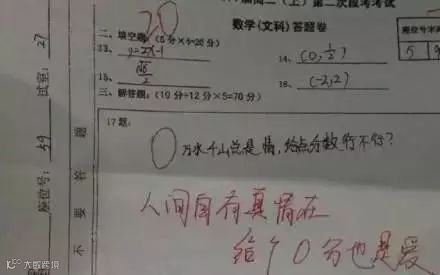 高二（上）第二次段考考试
数学（文科）答题卷
20
二、填空题：（5分×4=20分）
13、 y=2x-1 14、 (0,1/2)
15、 √6/2 16、 (-2,2)
三、解答题：（10分+12分×5=70分）
17题：
0
万水千山总是情，给点分数行不行？
人间自有真情在
给个0分也是爱
座位号
5
试室：27
座位号：59
答
要
不
大数跨境